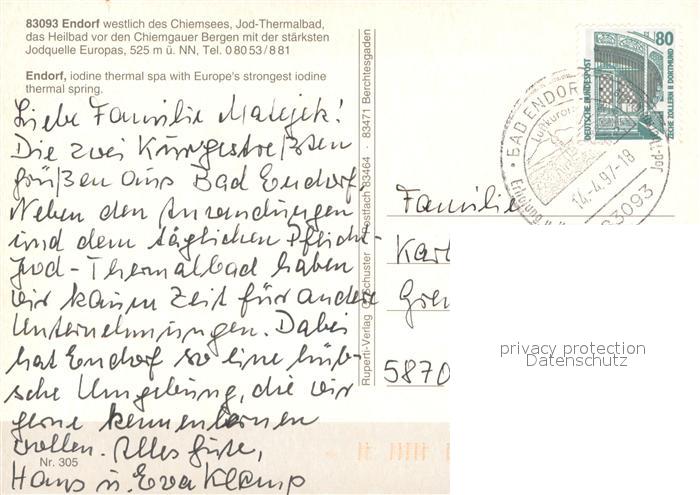 83093 Endorf westlich des Chiemsees, Jod-Thermalbad,
das Heilbad vor den Chiemgauer Bergen mit der stärksten
Jodquelle Europas, 525 m ü. NN, Tel. 0 80 53 / 8 81
Endorf, iodine thermal spa with Europe's strongest iodine
thermal spring.
Liebe Familie Matejek!
Die zwei Kurgestreßten
grüßen aus Bad Endorf.
Neben den Anwendungen
und dem täglichen Pflicht-
Jod-Thermalbad haben
wir kaum Zeit für andere
Unternehmungen. Dabei
hat Endorf so eine hüb-
sche Umgebung, die wir
gerne kennenlernen
wollen. Alles Gute,
Hans u. Eva Klamp
Nr. 305
Ruperti-Verlag Schuster Postfach 83464 · 83471 Berchtesgaden
80
DEUTSCHE BUNDESPOST
ZECHE ZOLLERN II DORTMUND
BAD ENDORF
Luftkurort
14.-4.97-18
83093
Familie
Karl
Gren
5870
privacy protection
Datenschutz